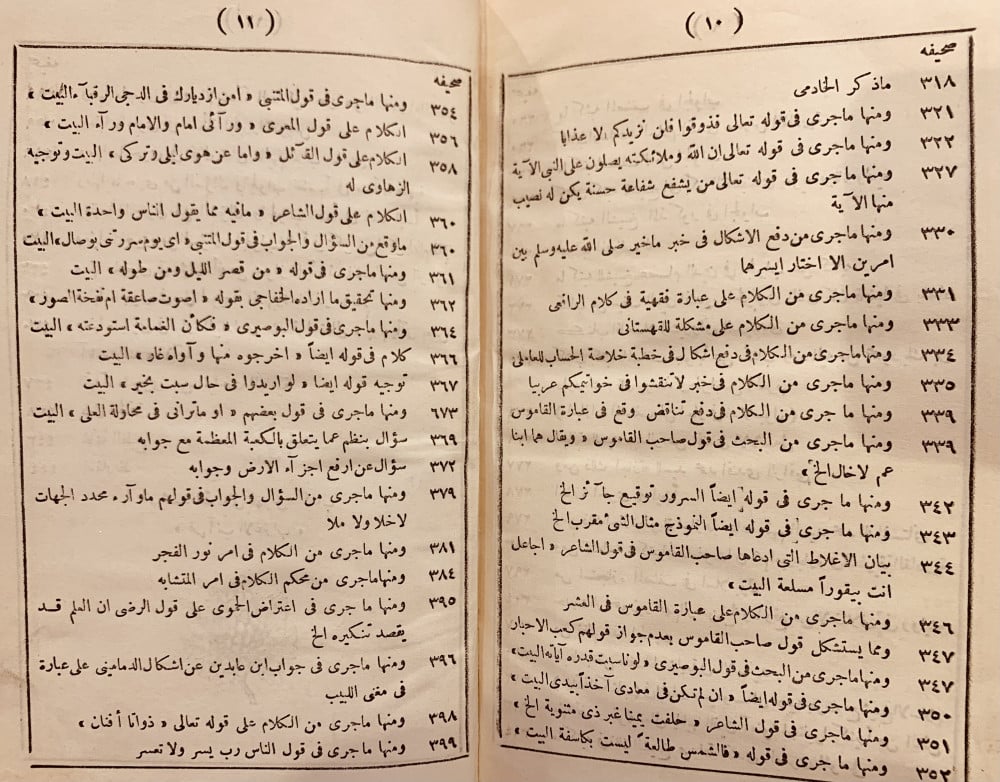 (١٠)
صحيفه
٣١٨ ماذكر الخادمى
٣٢١ ومنها ماجرى فى قوله تعالى فذوقوا فلن نزيدكم الا عذابا
٣٢٢ ومنها ماجرى فى قوله تعالى ان الله وملائكته يصلون على النبى الآية
٣٢٧ ومنها ماجرى فى قوله تعالى من يشفع شفاعة حسنة يكن له نصيب
منها الآية
٣٣٠ ومنها ماجرى من دفع الاشكال فى خبر ماخير صلى الله عليه وسلم بين
امرين الا اختار ايسرهما
٣٣١ ومنها ماجرى من الكلام على عبارة فقهية فى كلام الرافعى
٣٣٣ ومنها ماجرى من الكلام على مشكلة للقهستانى
٣٣٤ ومنها ماجرى من الكلام فى دفع اشكال فى خطبة خلاصة الحساب للعاملى
٣٣٥ ومنها ماجرى من الكلام فى خبر لاتنقشوا فى خواتيمكم عربيا
٣٣٩ ومنها ما جرى من الكلام فى دفع تناقض وقع فى عبارة القاموس
٣٣٩ ومنها ماجرى من البحث فى قول صاحب القاموس « ويقال هما ابنا
عم لاخال الخ »
٣٤٢ ومنها ما جرى فى قوله ايضاً السرور توقيع جآئز الخ
٣٤٣ ومنها ما جرى فى قوله ايضاً النموذج مثال الشئ معرب الخ
٣٤٤ بيان الاغلاط التى ادعاها صاحب القاموس فى قول الشاعر « اجاعل
انت بيقوراً مسلعة البيت »
٣٤٦ ومنها ماجرى من الكلام على عبارة القاموس فى العشر
٣٤٧ ومما يستشكل قول صاحب القاموس بعدم جواز قولهم كعب الاحبار
٣٤٧ ومنها ماجرى من البحث فى قول البوصيرى « لو ناسبت قدره آياته البيت »
٣٥٠ ومنها ماجرى فى قوله ايضاً « ان لم تكن فى معادى آخذاً بيدى البيت »
٣٥١ ومنها ماجرى فى قول الشاعر « حلفت يمينا غير ذى مثنوية الخ »
٣٥٢ ومنها ما جرى فى قوله « فالشمس طالعة ليست بكاسفة البيت »
(١١)
صحيفه
٣٥٤ ومنها ماجرى فى قول المتنبى « امن ازديارك فى الدجى الرقبآء البيت »
٣٥٦ الكلام على قول المعرى « ورآئى امام والامام ورآء البيت »
٣٥٨ الكلام على قول القآئل « واما عن هوى ليلى وتركى » البيت وتوجيه
الزهاوى له
٣٦٠ الكلام على قول الشاعر « مافيه مما يقول الناس واحدة البيت »
٣٦٠ ماوقع من السؤال والجواب فى قول المتنبى « اى يوم سررتنى بوصال » البيت
٣٦١ ومنها ماجرى فى قوله « من قصر الليل ومن طوله » البيت
٣٦٢ ومنها تحقيق ما اراده الخفاجى بقوله « اصوت صاعقة ام نفخة الصور »
٣٦٤ ومنها ماجرى فى قول البوصيرى « فكأن الغمامة استودعته » البيت
٣٦٦ كلام فى قوله ايضاً « اخرجوه منها وآواه غار » البيت
٣٦٧ توجيه قوله ايضا « لو اريدوا فى حال سبت بخير » البيت
٦٧٣ ومنها ماجرى فى قول بعضهم « او ماترانى فى محاولة العلى » البيت
٣٦٩ سؤال بنظم عما يتعلق بالكعبة المعظمة مع جوابه
٣٧٢ سؤال عن ارفع اجزآء الارض وجوابه
٣٧٩ ومنها ماجرى من السؤال والجواب فى قولهم ماورآء محدد الجهات
لاخلا ولا ملا
٣٨١ ومنها ماجرى من الكلام فى امر نور الفجر
٣٨٤ ومنها ماجرى من محكم الكلام فى امر المتشابه
٣٩٥ ومنها ما جرى فى اعتراض الحموى على قول الرضى ان العلم قد
يقصد تنكيره الخ
٣٩٦ ومنها ماجرى فى جواب ابن عابدين عن اشكال الدمامينى على عبارة
فى مغنى اللبيب
٣٩٨ ومنها ماجرى من الكلام على قوله تعالى « ذواتا أفنان »
٣٩٩ ومنها ماجرى فى قول الناس رب يسر ولا تعسر